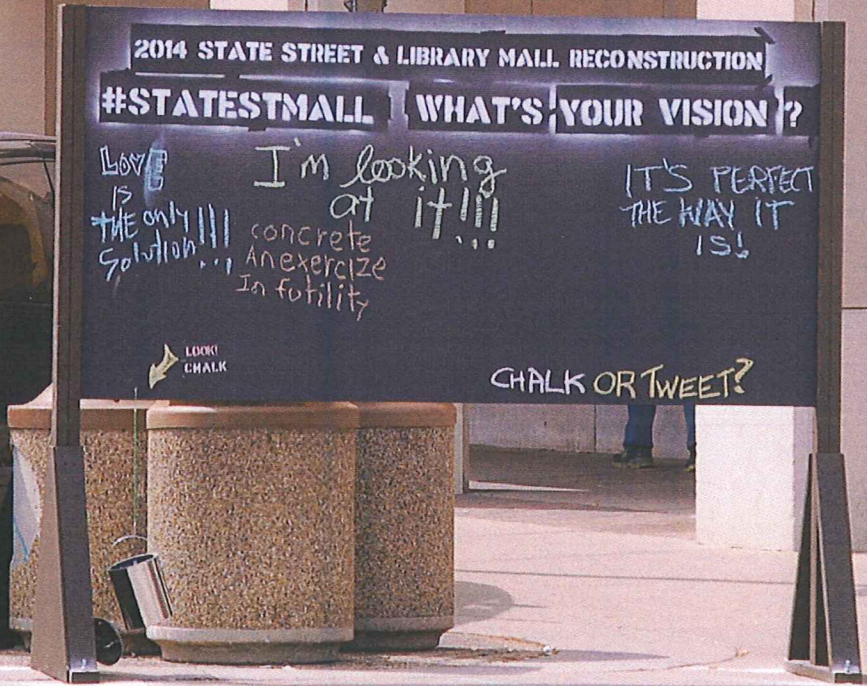 2014 STATE STREET & LIBRARY MALL RECONSTRUCTION
#STATESTMALL WHAT'S YOUR VISION ?
LOVE
IS
THE only !!!
Solution...!
I'm looking
at it!!!
...
concrete
An exercize
In futility
IT'S PERFECT
THE WAY IT
IS!
LOOK!
CHALK
CHALK OR TWEET?